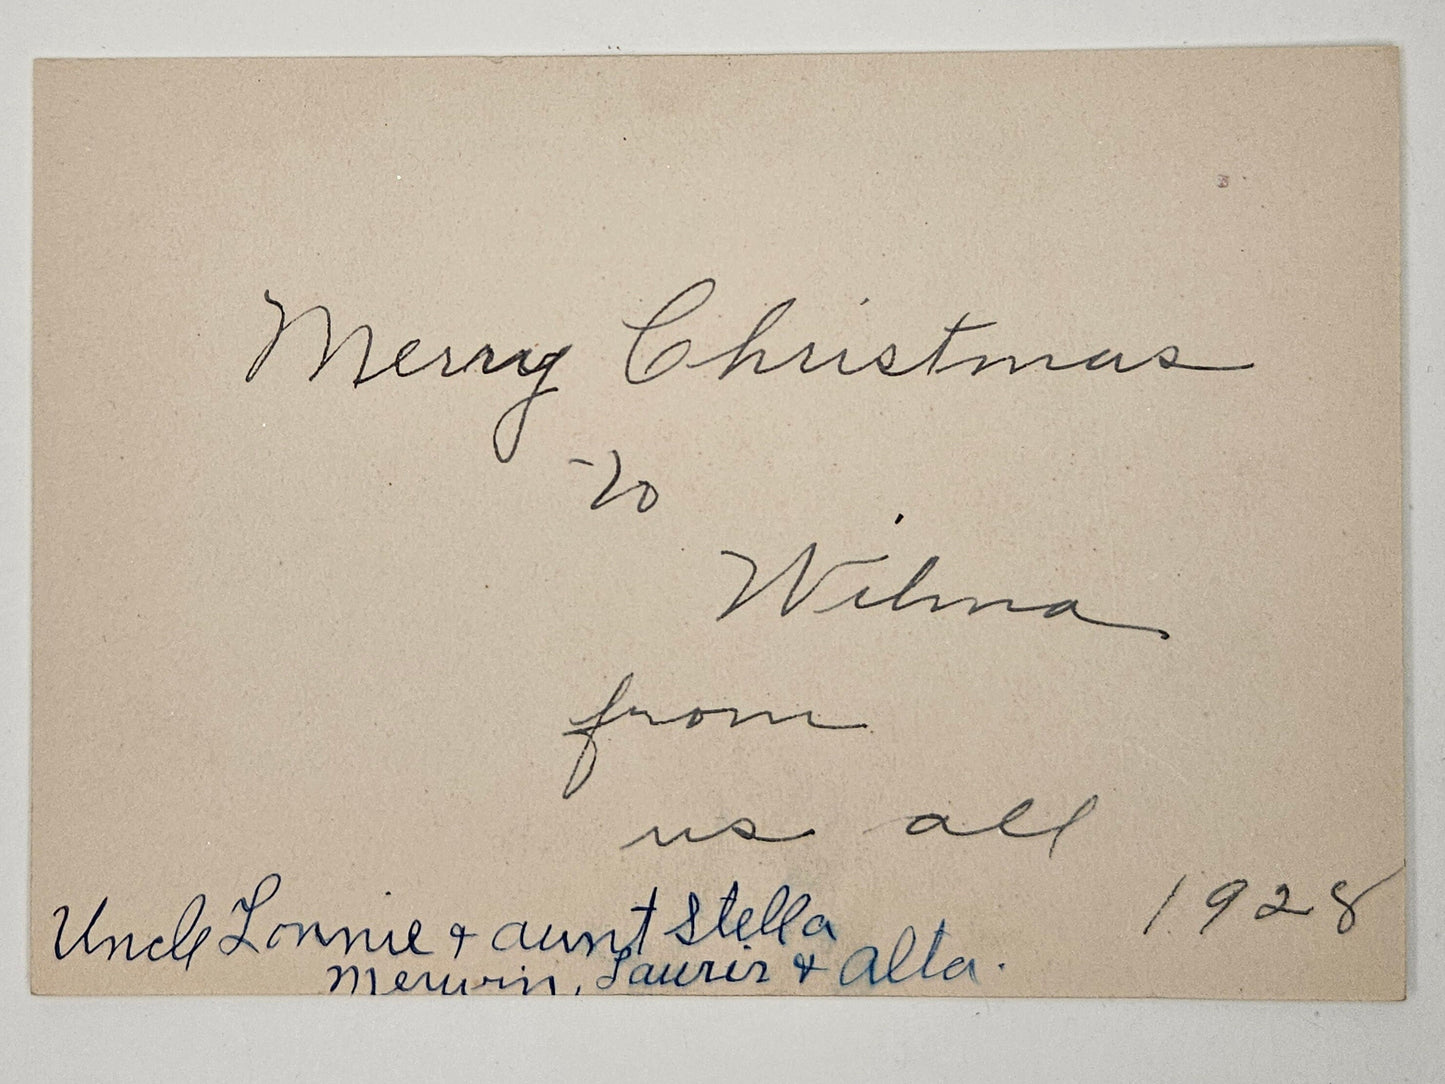 Merry Christmas
to
Wilma
from
us all
1928
Uncle Lonnie + aunt Stella
Merwin, + Alta.